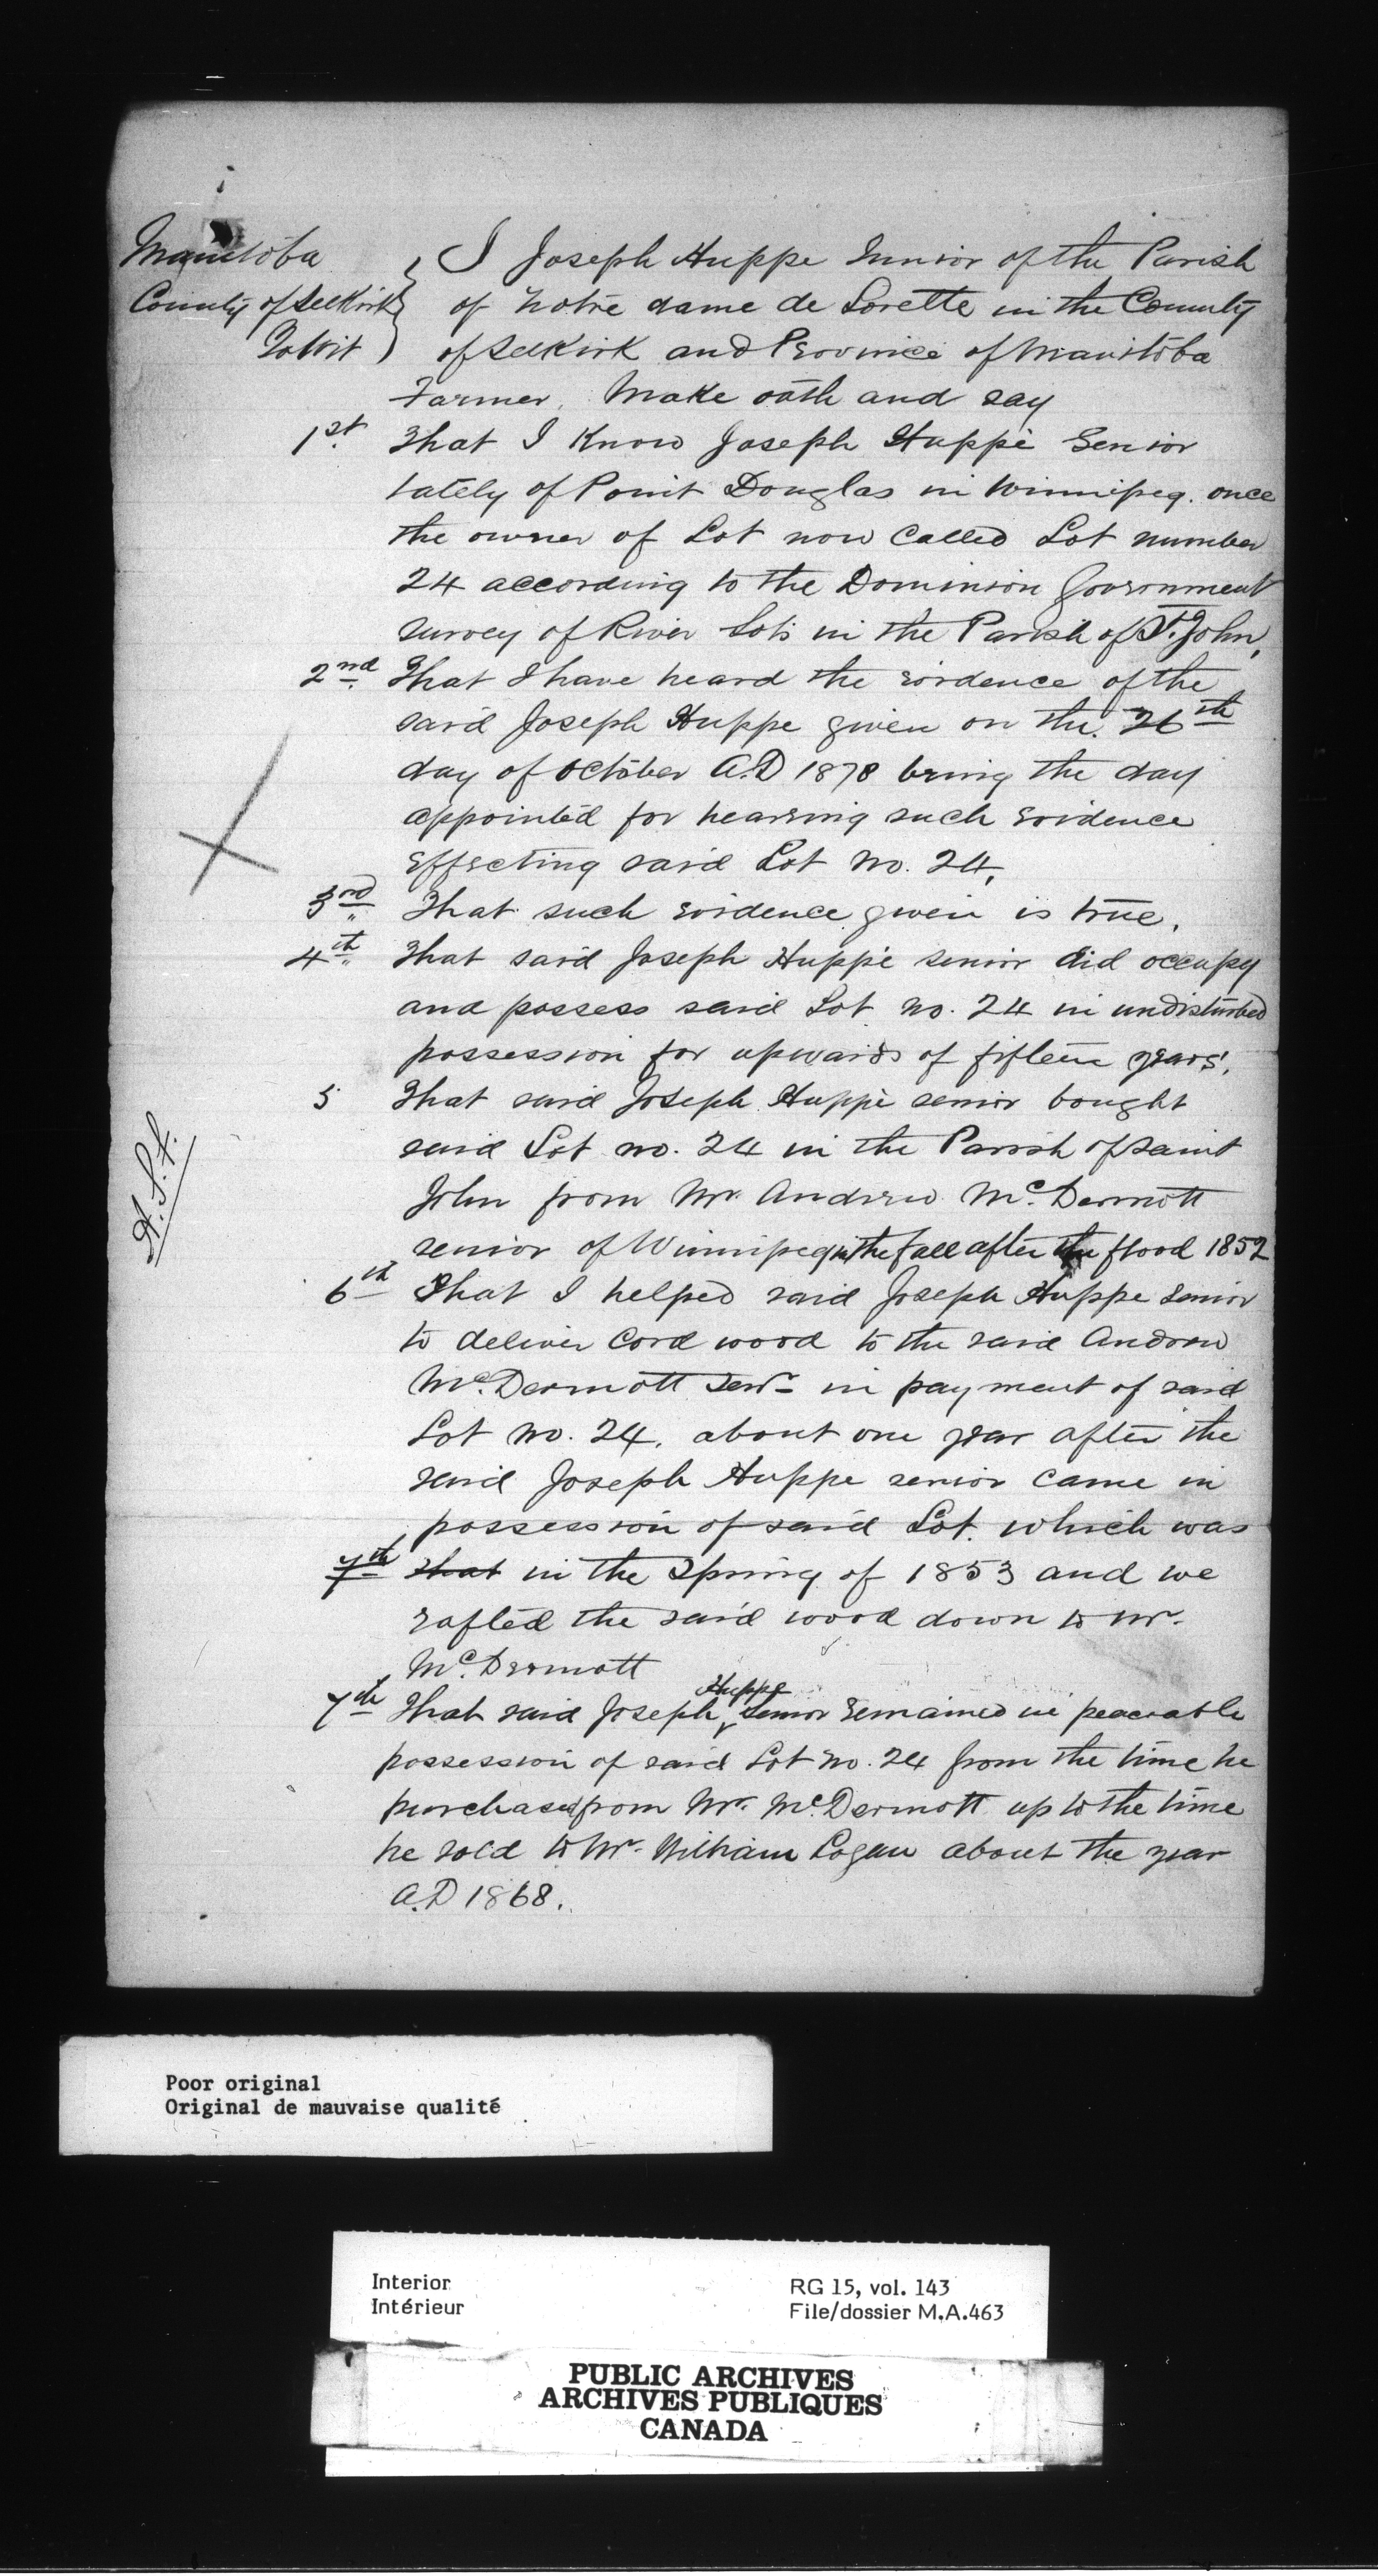 Manitoba
County of Selkirk
To Wit
I Joseph Huppe Junior of the Parish
of Notre dame de Lorette in the County
of Selkirk and Province of Manitoba
Farmer, Make oath and say
1st That I Know Joseph Huppé Senior
lately of Point Douglas in Winnipeg. once
the owner of Lot now called Lot number
24 according to the Dominion Government
survey of River Lots in the Parish of St. John,
2nd That I have heard the evidence of the
said Joseph Huppe given on the 26th
day of October A.D 1878 being the day
appointed for hearing such evidence
effecting said Lot No. 24,
3rd That such evidence given is true.
4th That said Joseph Huppé senior did occupy
and possess said Lot No. 24 in undisturbed
possession for upwards of fifteen years.
5 That said Joseph Huppé senior bought
said Lot no. 24 in the Parish of Saint
John from Mr. Andrew McDermott
senior of Winnipeg in the fall after the flood 1852
A.S.F.
6th That I helped said Joseph Huppe senior
to deliver Cord wood to the said Andrew
McDermott Senr in payment of said
Lot No. 24, about one year after the
said Joseph Huppe senior came in
possession of said Lot. which was
7th that in the Spring of 1853 and we
rafted the said wood down to Mr.
McDermott
7th That said Joseph Huppe Senior remained in peaceable
possession of said Lot No. 24 from the time he
purchased from Mr. McDermott up to the time
he sold to Mr. William Logan about the year
A.D 1868.
Poor original
Original de mauvaise qualité
Interior
Intérieur
RG 15, vol. 143
File/dossier M.A.463
PUBLIC ARCHIVES
ARCHIVES PUBLIQUES
CANADA